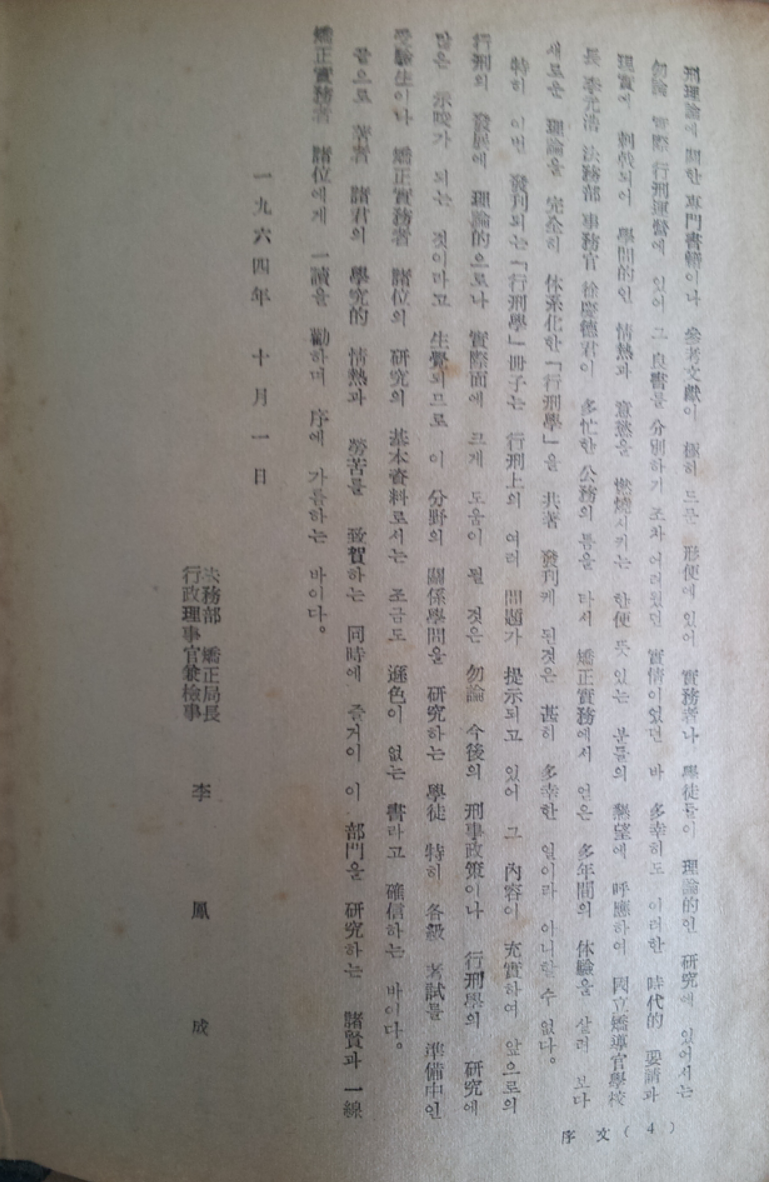 序 文 ( 4 )
刑理論에 關한 專門書籍이나 參考文獻이 極히 드문 形便에 있어 實務者나 學徒들이 理論的인 研究에 있어서는
勿論 實際 行刑運營에 있어 그 良書를 分別하기 조차 어려웠던 實情이었던 바 多幸히도 이러한 時代的 要請과
現實에 刺戟되어 學問的인 情熱과 意慾을 燃燒시키는 한便 뜻 있는 분들의 熱望에 呼應하여 矯導官學校
長 李元浩 法務部 事務官 徐慶德君이 多忙한 公務의 틈을 타서 矯正實務에서 얻은 多年間의 体驗을 살려 보다
새로운 理論을 完全히 体系化한 「行刑學」을 共著 發刊케 된것은 甚히 多幸한 일이라 아니할 수 없다。
特히 이번 發刊되는 「行刑學」 冊子는 行刑上의 여러 問題가 提示되고 있어 그 內容이 充實하여 앞으로의
行刑의 發展에 理論的으로나 實際面에 크게 도움이 될 것은 勿論 今後의 刑事政策이나 行刑學의 研究에
많은 示唆가 되는 것이라고 生覺되므로 이 分野의 關係學問을 研究하는 學徒 特히 各級 考試를 準備中인
受驗生이나 矯正實務者 諸位의 研究의 基本資料로서는 조금도 遜色이 없는 書라고 確信하는 바이다。
끝으로 著者 諸君의 學究的 情熱과 勞苦를 致賀하는 同時에 즐거이 이 部門을 研究하는 諸賢과 一線
矯正實務者 諸位에게 一讀을 勸하며 序에 가름하는 바이다。
一九六四年 十月一日
法務部 矯正局長
行政理事官兼檢事
李 鳳 成